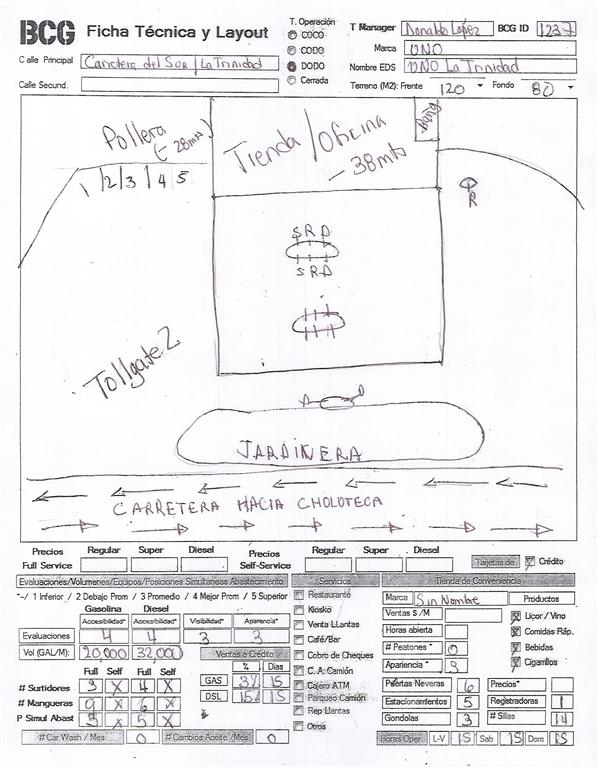 BCG Ficha Técnica y Layout
T. Operación
COCO
CODO
DODO
Cerrada
T Manager Donaldo López BCG ID 1237
Marca UNO
Calle Principal Carretera del Sur / La Trinidad
Nombre EDS UNO La Trinidad
Calle Secund.
Terreno (M2): Frente 120 Fondo 80
Pollera (-28mts)
1 /2/3 /4 5
Tienda/Oficina
-38mts
Baños
R
S R D
S R D
Tollgate 2
A D
JARDINERA
CARRETERA HACIA CHOLOTECA
Precios Full Service Regular Super Diesel
Precios Self-Service Regular Super Diesel
Tarjetas de Crédito
Evaluaciones/Volumenes/Equipos/Posiciones Simultaneas Abastecimiento
*-/ 1 Inferior / 2 Debajo Prom / 3 Promedio / 4 Mejor Prom / 5 Superior
Gasolina Diesel
Accesibilidad* Accesibilidad* Visibilidad* Aparencia*
Evaluaciones 4 4 3 3
Vol (GAL/M): 20,000 32,000
Ventas a Crédito
% Dias
GAS 3% 15
DSL 15% 15
Full Self Full Self
# Surtidores 3 X 4 X
# Mangueras 9 X 6 X
P Simul Abast 3 X 5 X
# Car Wash / Mes 0 # Cambios Aceite /Mes 0
Servicios
Restaurante
Kiosko
Venta LLantas
Café/Bar
Cobro de Cheques
C. A. Camión
Cajero ATM
Parqueo Camión
Rep Llantas
Otros
Tienda de Conveniencia
Marca Sin Nombre
Ventas S / M
Horas abierta
# Peatones * 0
Apariencia * 3
Productos
Liçor / Vino
Comidas Ráp.
Bebidas
Cigarrilos
Puertas Neveras 6 Precios*
Estacionamientos 5 Registradoras 1
Gondolas 3 # Sillas 14
Horas Oper. L-V 15 Sab 15 Dom 15